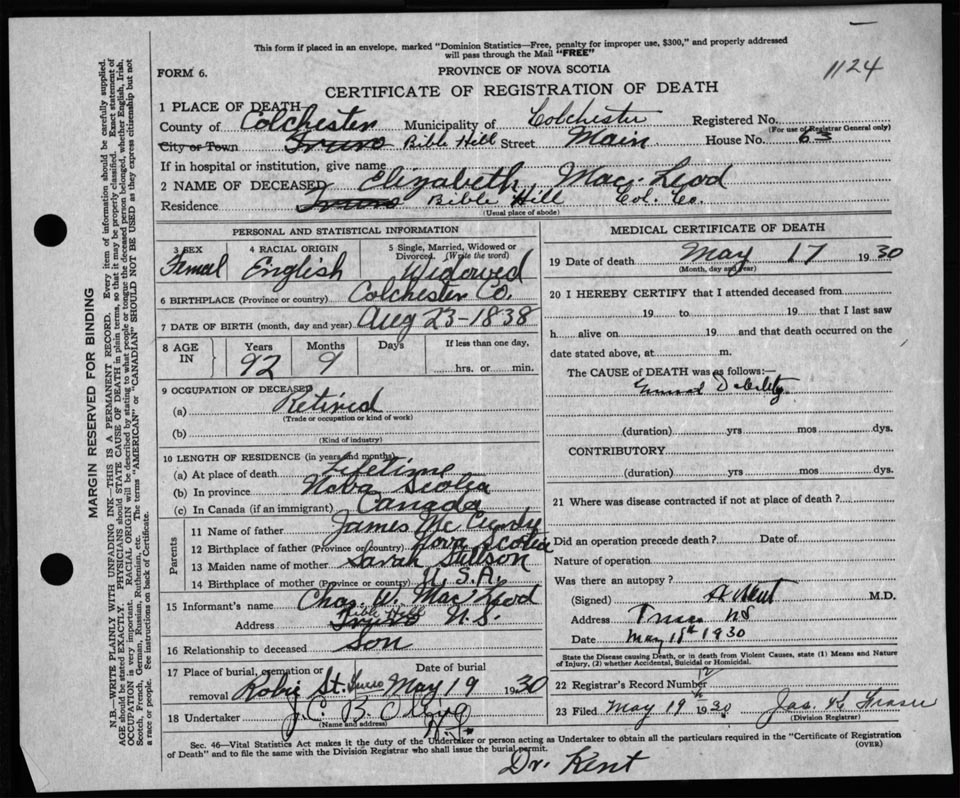 This form if placed in an envelope, marked "Dominion Statistics—Free, penalty for improper use, $300," and properly addressed
will pass through the Mail "FREE"
1124
FORM 6.
PROVINCE OF NOVA SCOTIA
CERTIFICATE OF REGISTRATION OF DEATH
MARGIN RESERVED FOR BINDING
N.B.—WRITE PLAINLY WITH UNFADING INK—THIS IS A PERMANENT RECORD. Every item of information should be carefully supplied.
AGE should be stated EXACTLY. PHYSICIANS should STATE CAUSE OF DEATH in plain terms, so that it may be properly classified. Exact statement of
OCCUPATION is very important. RACIAL ORIGIN will be described by stating to what people or tongue the deceased person belonged, whether English, Irish,
Scotch, French, German, Russian, Ruthenian, etc. The terms "AMERICAN" or "CANADIAN" SHOULD NOT BE USED as they express citizenship but not
a race or people. See instructions on back of Certificate.
1 PLACE OF DEATH—
County of Colchester Municipality of Colchester Registered No.
(For use of Registrar General only)
City or Town Truro Bible Hill Street Main House No. 63
If in hospital or institution, give name
2 NAME OF DECEASED Elizabeth Mac Leod
Residence Truro Bible Hill Col. Co.
(Usual place of abode)
PERSONAL AND STATISTICAL INFORMATION
3 SEX Femal
4 RACIAL ORIGIN English
5 Single, Married, Widowed or Divorced. (Write the word) Widowed
6 BIRTHPLACE (Province or country) Colchester Co.
7 DATE OF BIRTH (month, day and year) Aug 23-1838
8 AGE IN Years 92 Months 9 Days If less than one day, hrs. or min.
9 OCCUPATION OF DECEASED
(a) Retired
(Trade or occupation or kind of work)
(b)
(Kind of industry)
10 LENGTH OF RESIDENCE (in years and months)
(a) At place of death Lifetime
(b) In province Nova Scotia
(c) In Canada (if an immigrant) Canada
Parents
11 Name of father James Mc Curdy
12 Birthplace of father (Province or country) Nova Scotia
13 Maiden name of mother Sarah
14 Birthplace of mother (Province or country) U.S.A.
15 Informant's name Chas. W. Mac Leod
Address Truro Bible Hill N.S.
16 Relationship to deceased Son
17 Place of burial, cremation or removal Robie St. Truro Date of burial May 19 1930
18 Undertaker J. C. B. Olive
(Name and address)
MEDICAL CERTIFICATE OF DEATH
19 Date of death May 17 1930
(Month, day and year)
20 I HEREBY CERTIFY that I attended deceased from
19 to 19 that I last saw
h alive on 19 and that death occurred on the
date stated above, at m.
The CAUSE of DEATH was as follows:—
General Debility
(duration) yrs mos dys.
CONTRIBUTORY
(duration) yrs mos dys.
21 Where was disease contracted if not at place of death?
Did an operation precede death? Date of
Nature of operation
Was there an autopsy?
(Signed) Kent M.D.
Address Truro NS
Date May 18th 1930
State the Disease causing Death, or in death from Violent Causes, state (1) Means and Nature
of Injury, (2) whether Accidental, Suicidal or Homicidal.
22 Registrar's Record Number
23 Filed May 19 1930 Jas. K Fraser
(Division Registrar)
Sec. 46—Vital Statistics Act makes it the duty of the Undertaker or person acting as Undertaker to obtain all the particulars required in the "Certificate of Registration
of Death" and to file the same with the Division Registrar who shall issue the burial permit.
(OVER)
Dr. Kent